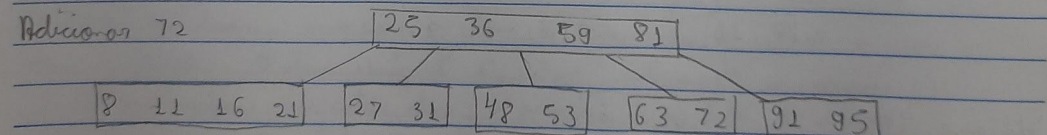 Adicionar 72 25 36 59 81
8 11 16 21 27 31 48 53 63 72 91 95